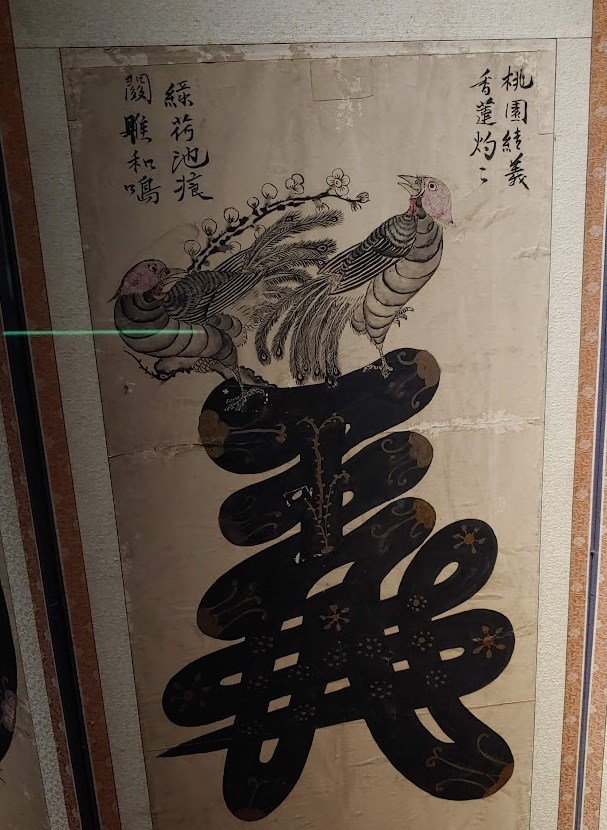 桃園結義
香蓮灼〻
綠荷池痕
關雎和鳴
義